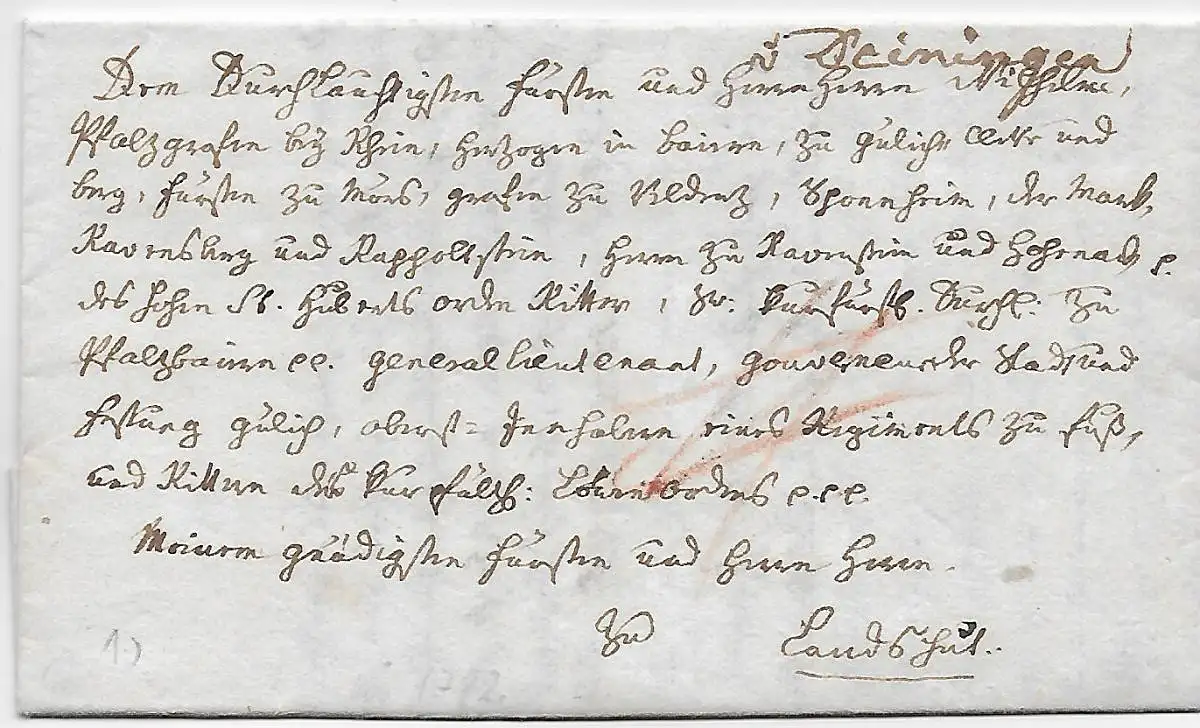 v Deiningen
Dem Durchläuchtigsten Fürsten und Herrn Herrn Wilhelm,
Pfalzgrafen bey Rhein, Herzogen in Bairn, zu Gülich Cleve und
Berg, Fürsten zu Mörs, Grafen zu Veldenz, Sponnheim, der Mark,
Ravensberg und Rappoltstein, Herrn zu Ravenstein und Hohenack p.
des hohen St. Huberts Orden Ritter, Sr: Kurfürstl. Durchl: zu
Pfalzbairn pp. Generallieutenant, Gouverneur der Stadt und
Festung Gülich, Oberst= Innhabern eines Regiments zu Fuß,
und Rittern des Kurpfälz: Löwenordens p.p.p.
Meinem gnädigsten Fürsten und Herrn Herrn.
zu Landshut.
1.)
1792